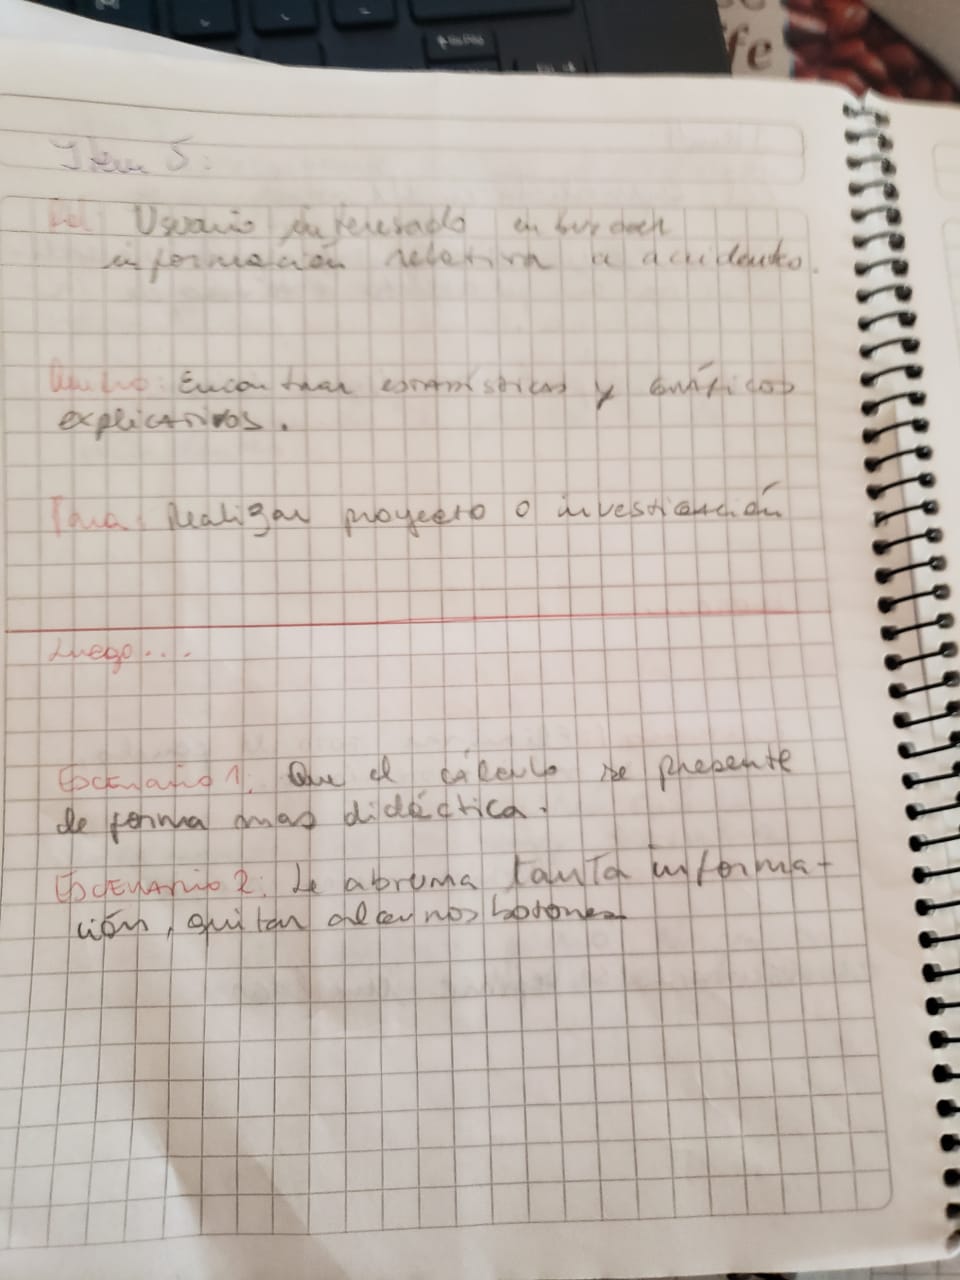 fe
Item 5:
Usuario interesado en buscar
información relativa a accidentes.
Quiero: Encontrar estadísticas y gráficos
explicativos.
Para: Realizar proyecto o investigación
Luego...
Escenario 1: Que el cálculo se presente
de forma mas didáctica.
Escenario 2: Le abruma tanta informa-
ción, quitar algunos botones